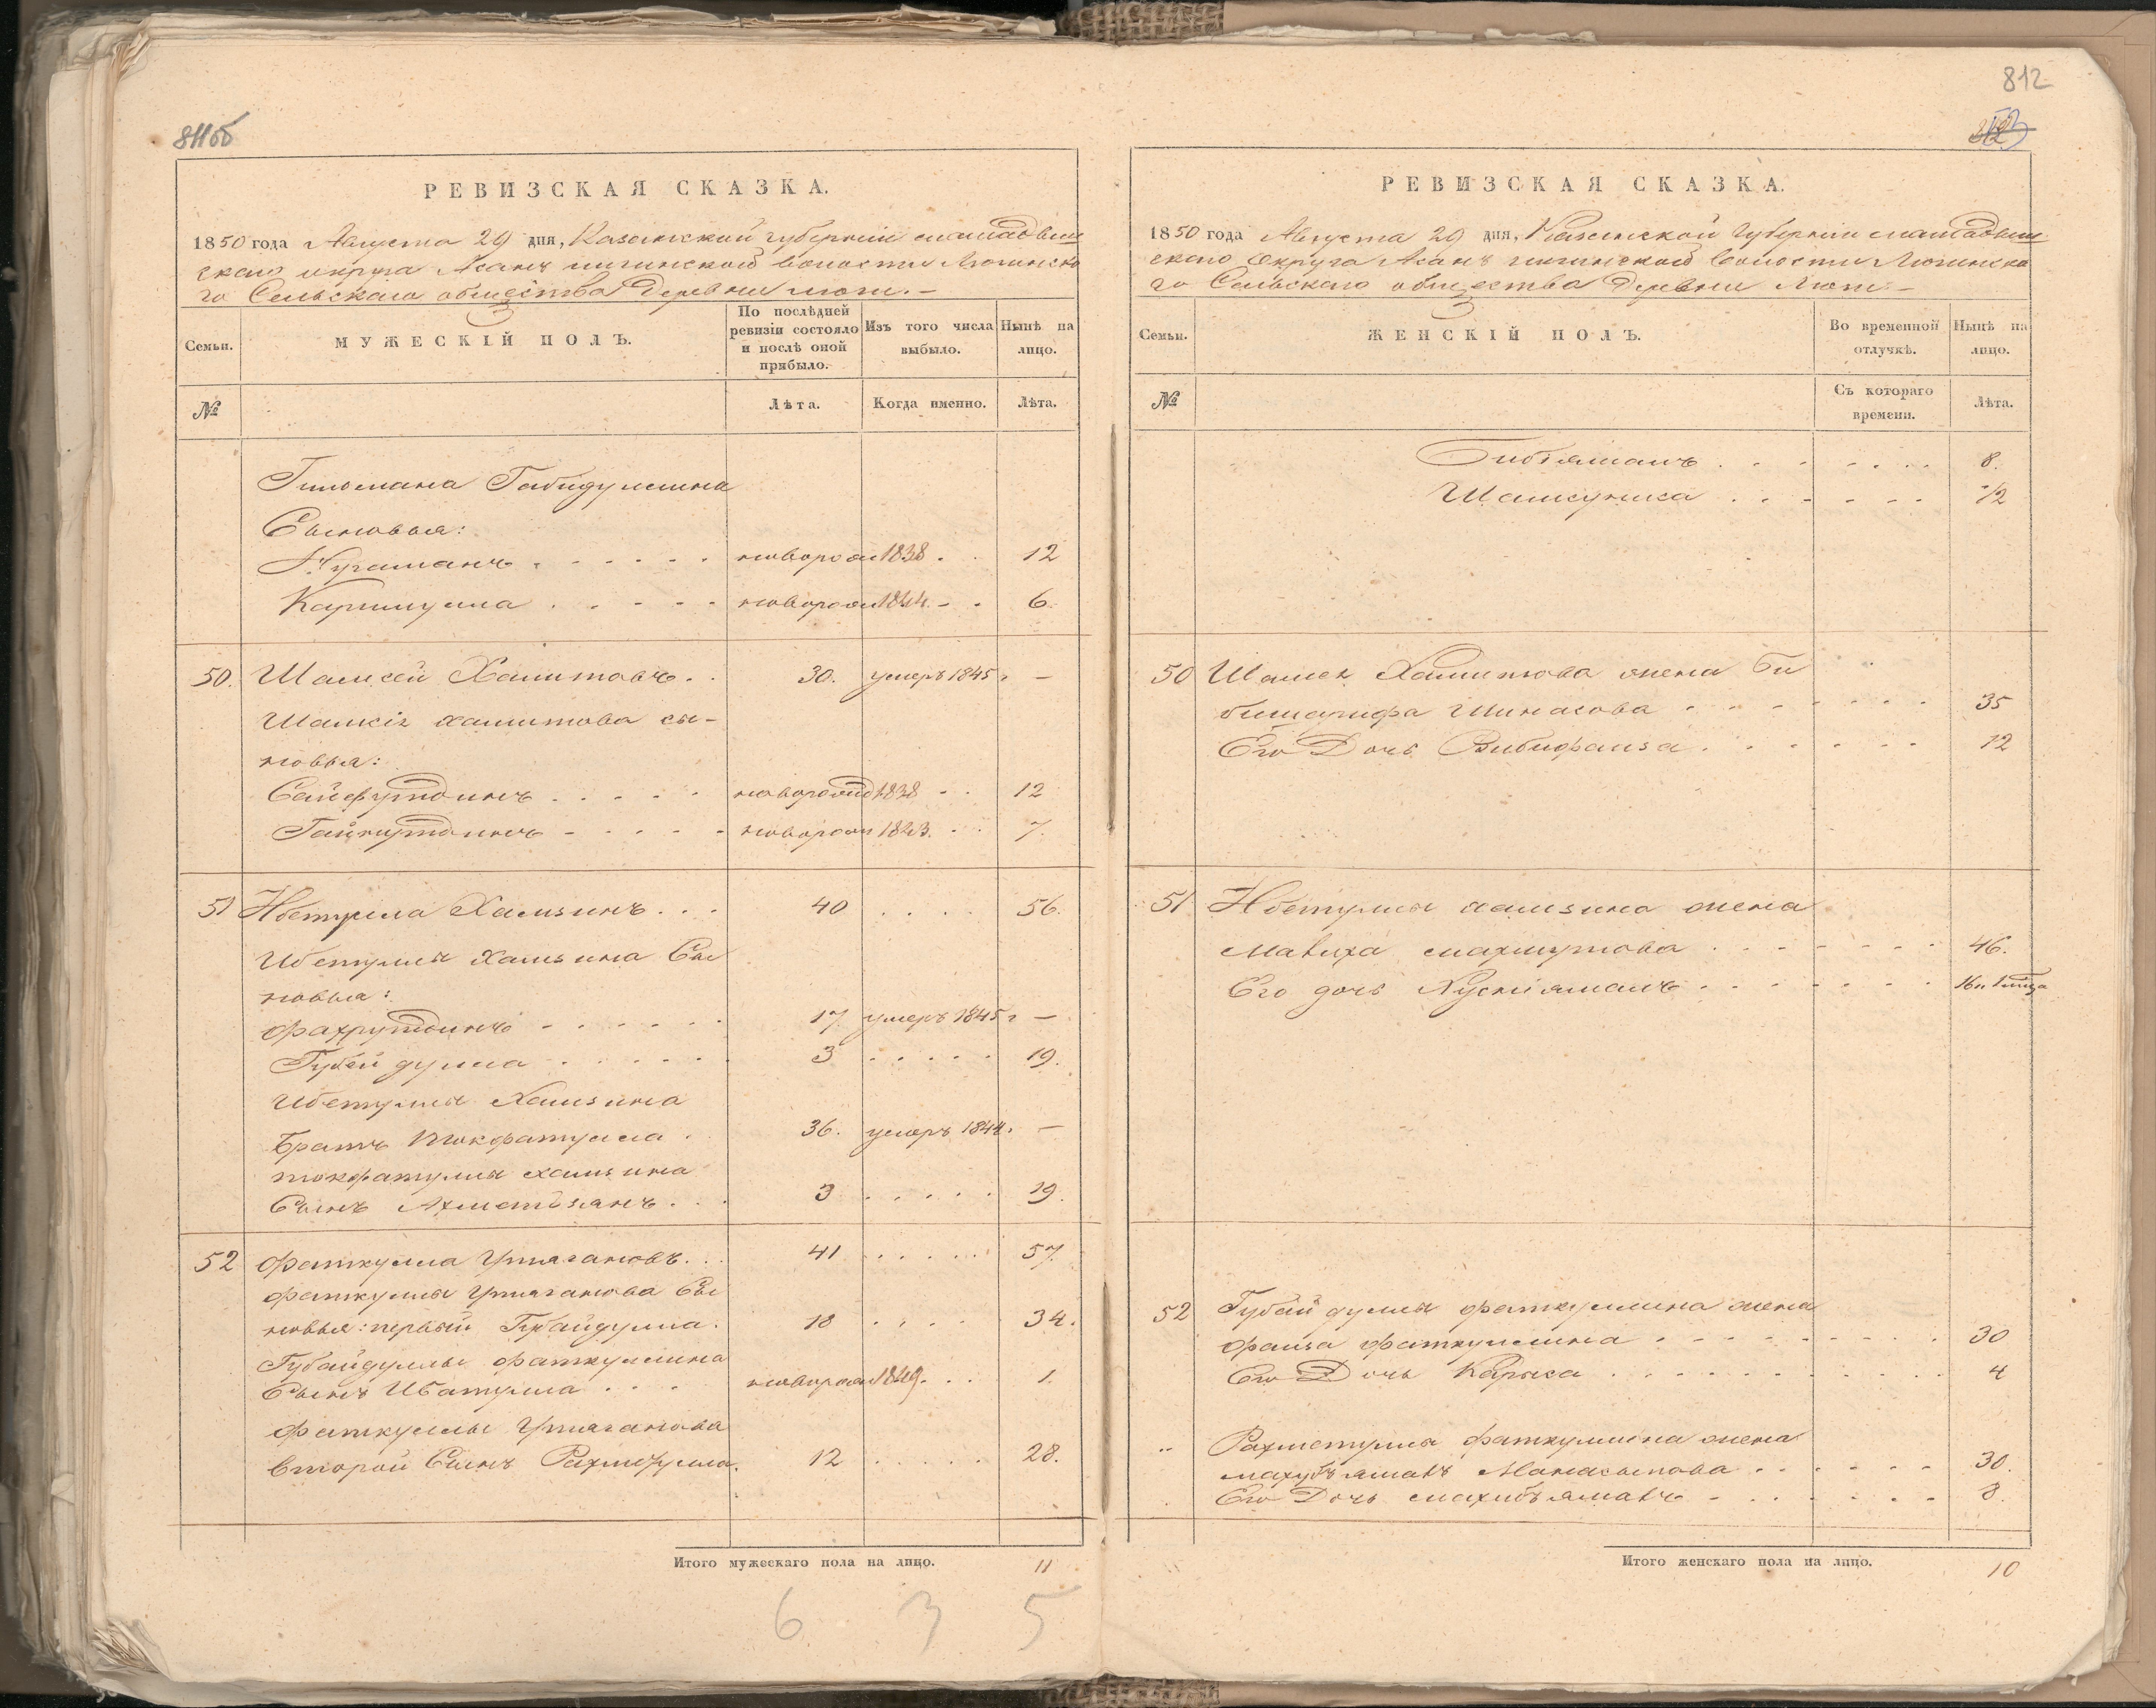 811об
РЕВИЗСКАЯ СКАЗКА.
1850 года Августа 29 дня, Казанской губерніи мамадыш
скаго округа Асанъ илгинской волости Мюгинска
го Сельскаго общества Деревни
Семьи.
МУЖЕСКІЙ ПОЛЪ.
По послѣдней ревизіи состояло и послѣ оной прибыло.
Изъ того числа выбыло.
Нынѣ на лицо.
№
Лѣта.
Когда именно.
Лѣта.
Гильмана Габидуллина
Сыновья:
Нугаманъ . . . . . . новорож 1838 . . 12
Каримулла . . . . . новорож 1844 . . 6.
50. Шамсей Хамитовъ . . 30. умеръ 1845 г —
Шамсія хамитова сы-
новья:
Сайфутдинъ . . . . . новорожд 1838 . . 12
Гайнутдинъ . . . . . новорож 1843. . . 7.
51 Ибетулла Хамзинъ . . . 40 . . . . 56.
Ибетуллы Хамзина Сы
новья:
Фахрутдинъ . . . . . . 17. умеръ 1845 г —
Губейдулла . . . . . . 3 . . . . . 19.
Ибетуллы Хамзина
братъ Токфатулла . 36. умеръ 1844. —
токфатуллы хамзина
Сынъ Ахметзянъ . . . 3 . . . . . 19.
52 Фаткулла Утягановъ. . . 41 . . . . . 57.
Фаткуллы Утяганова Сы
новья: первый Губайдулла. 18 . . . . 34.
Губайдуллы Фаткуллина
Сынъ Ибатулла . . . новорож 1849. . . 1.
Фаткуллы Утяганова
второй Сынъ Рахметулла. 12 . . . . . 28.
Итого мужескаго пола на лицо. 11
6 3 5
812
РЕВИЗСКАЯ СКАЗКА.
1850 года Августа 29 дня, Казанской Губерніи мамадыш
скаго Округа Асанъ илгинской волости Мюгинска
го Сельскаго общества Деревни
Семьи.
ЖЕНСКІЙ ПОЛЪ.
Во временной отлучкѣ.
Нынѣ на лицо.
№
Съ котораго времени.
Лѣта.
Бибіямалъ . . . . . . . 8.
Шамсуниса . . . . . . 1/2
50 Шамся Хамитова жена Би
бишарифа Шинасова . . . . . . . 35
Его Дочь Бибифаиза . . . . . . 12
51 Ибетуллы хамзина жена
Малиха махмутова . . . . . . 46.
Его дочь Хуснiямалъ . . . . . . .
52 Губайдуллы фаткуллина жена
Фаиза фаткуллина . . . . . . . . 30
Его Дочь . . . . . . . . . . 4
" Рахметуллы Фаткуллина жена
махубъямалъ . . . . . . 30.
Его Дочь махибъямалъ . . . . . . 8.
Итого женскаго пола на лицо. 10